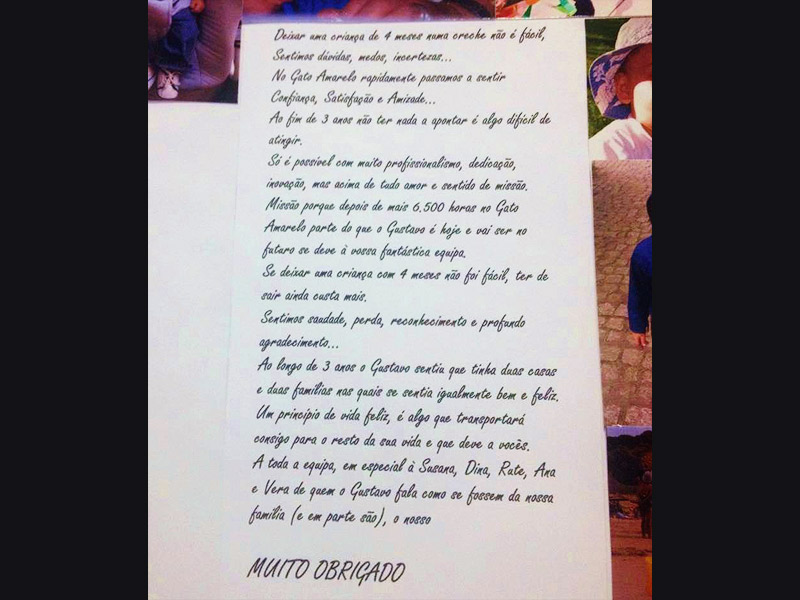 Deixar uma criança de 4 meses numa creche não é fácil,
Sentimos dúvidas, medos, incertezas...
No Gato Amarelo rapidamente passamos a sentir
Confiança, Satisfação e Amizade...
Ao fim de 3 anos não ter nada a apontar é algo difícil de
atingir.
Só é possível com muito profissionalismo, dedicação,
inovação, mas acima de tudo amor e sentido de missão.
Missão porque depois de mais 6.500 horas no Gato
Amarelo parte do que o Gustavo é hoje e vai ser no
futuro se deve à vossa fantástica equipa.
Se deixar uma criança com 4 meses não foi fácil, ter de
sair ainda custa mais.
Sentimos saudade, perda, reconhecimento e profundo
agradecimento...
Ao longo de 3 anos o Gustavo sentiu que tinha duas casas
e duas famílias nas quais se sentia igualmente bem e feliz.
Um princípio de vida feliz, é algo que transportará
consigo para o resto da sua vida e que deve a vocês.
A toda a equipa, em especial à Susana, Dina, Rute, Ana
e Vera de quem o Gustavo fala como se fossem da nossa
família (e em parte são), o nosso
MUITO OBRIGADO